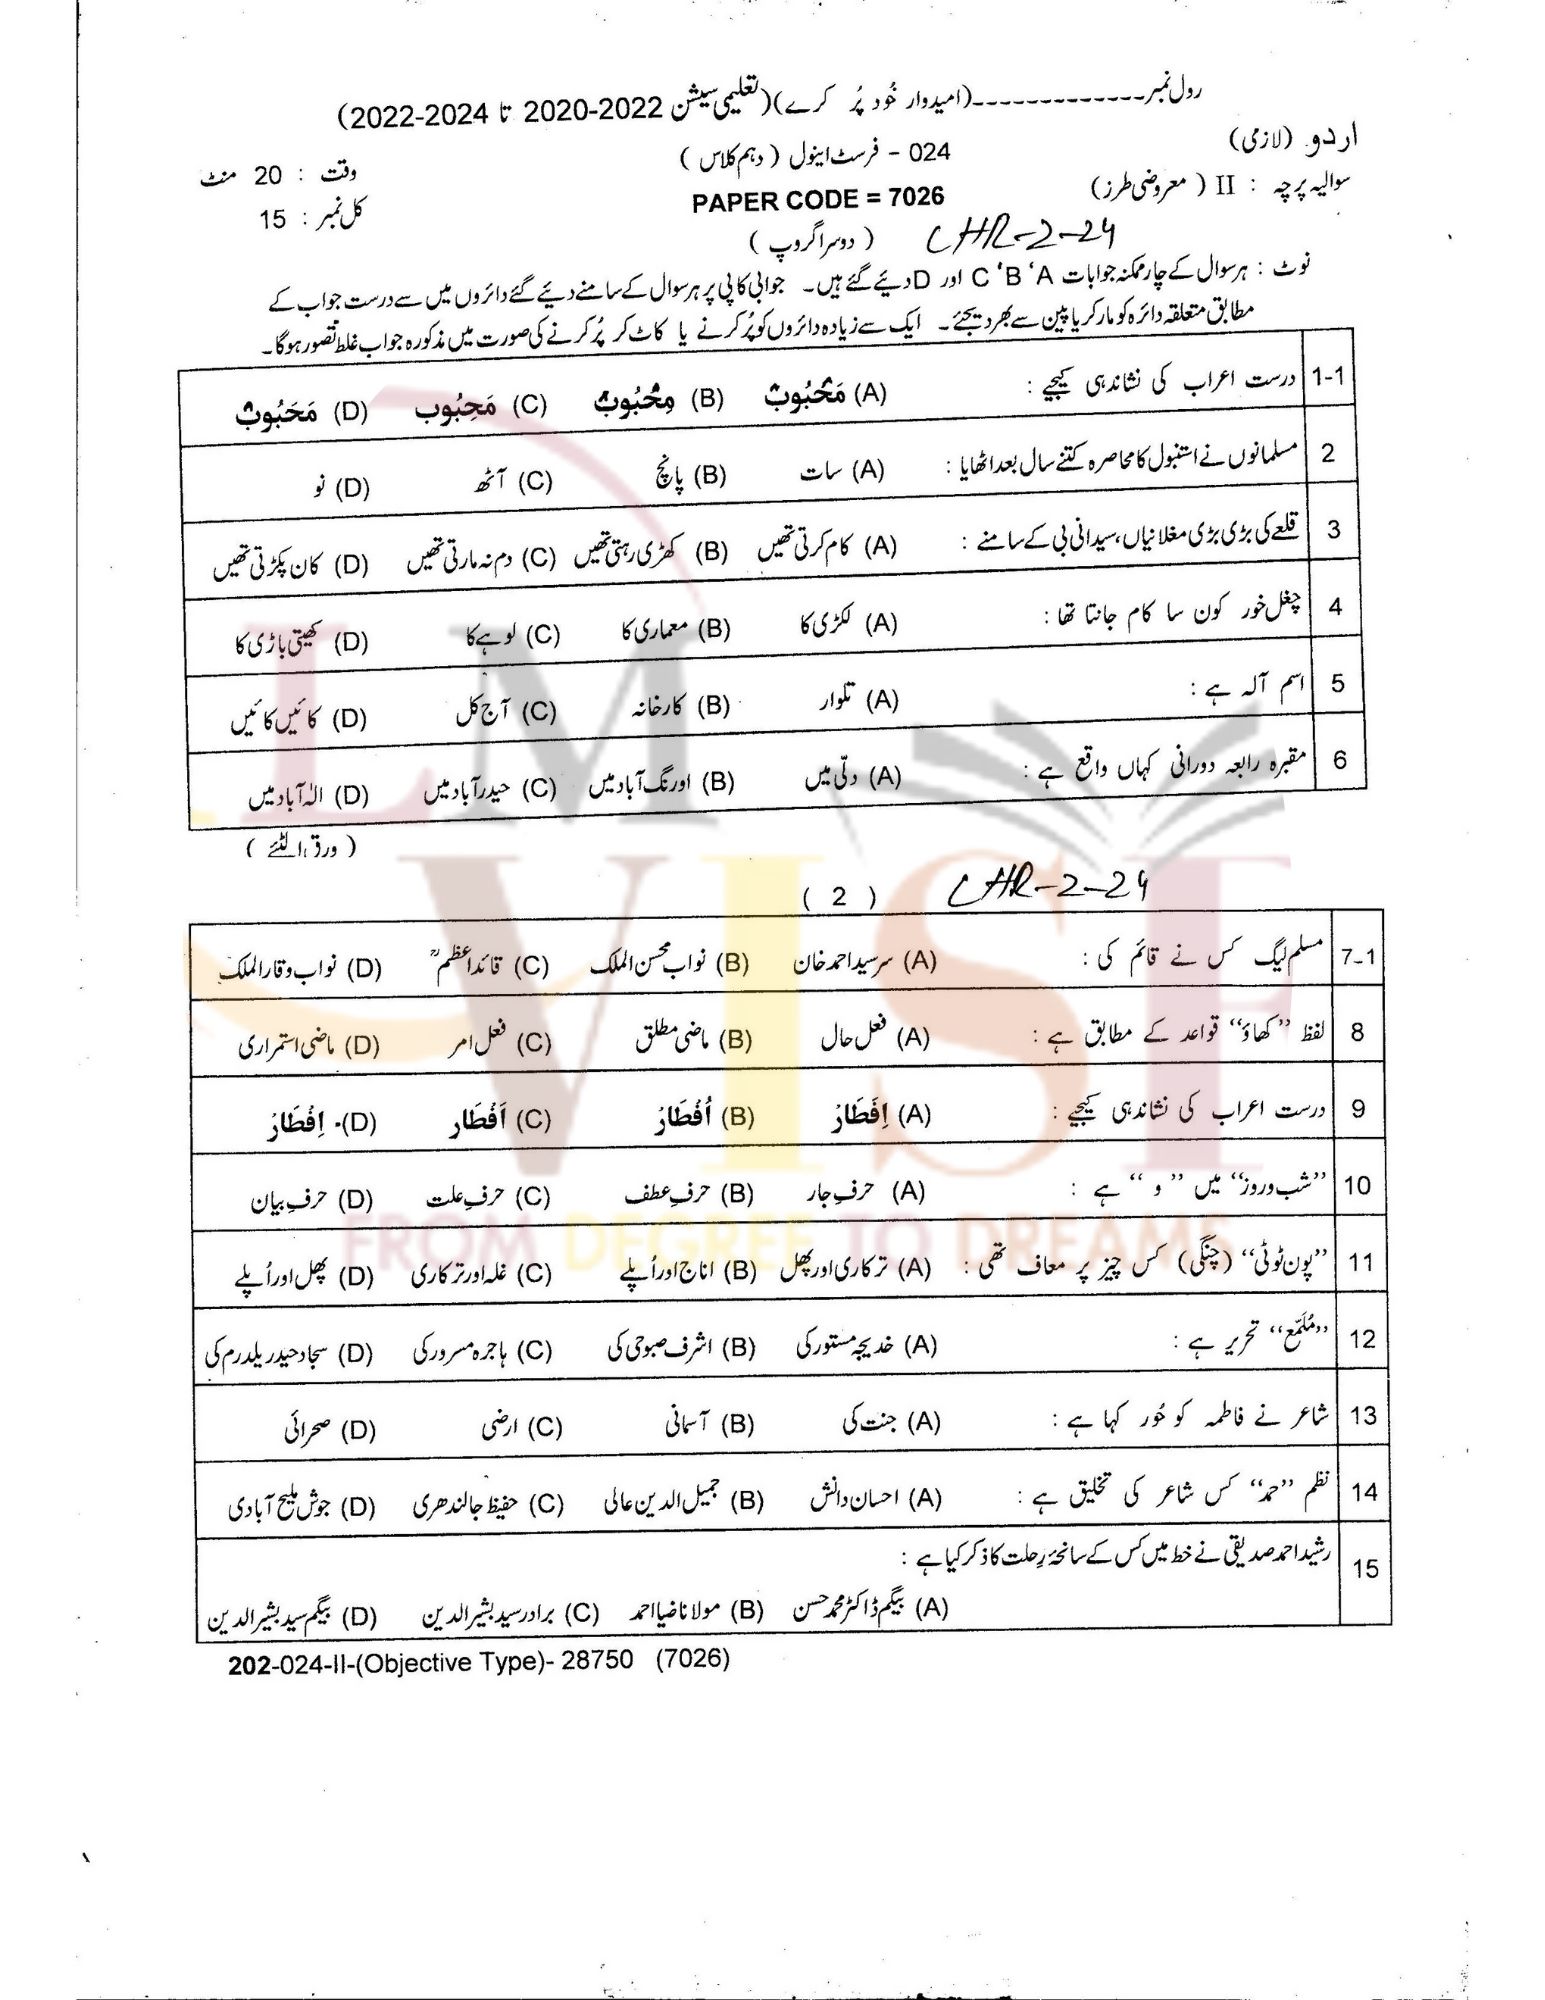 رول نمبر-------------(امیدوار خُود پُر کرے)(تعلیمی سیشن 2022-2020 تا 2024-2022)
اردو (لازمی)
024 - فرسٹ اینول (دہم کلاس)
وقت : 20 منٹ
سوالیہ پرچہ : II (معروضی طرز)
PAPER CODE = 7026
کل نمبر : 15
(دوسرا گروپ)
CHR-2-24
نوٹ : ہر سوال کے چار ممکنہ جوابات A ' B ' C اور D دیئے گئے ہیں۔ جوابی کاپی پر ہر سوال کے سامنے دیئے گئے دائروں میں سے درست جواب کے
مطابق متعلقہ دائرہ کو مارکر یا پین سے بھر دیجئے۔ ایک سے زیادہ دائروں کو پُر کرنے یا کاٹ کر پُر کرنے کی صورت میں مذکورہ جواب غلط تصور ہوگا۔
1-1 درست اعراب کی نشاندہی کیجیے : (A) مَحْبُوبْ (B) مِحْبُوبْ (C) مَحِبُوب (D) مَحَبُوبْ
2 مسلمانوں نے استنبول کا محاصرہ کتنے سال بعد اٹھایا : (A) سات (B) پانچ (C) آٹھ (D) نو
3 قلعے کی بڑی بڑی مغلانیاں، سیدانی بی کے سامنے : (A) کام کرتی تھیں (B) کھڑی رہتی تھیں (C) دم نہ مارتی تھیں (D) کان پکڑتی تھیں
4 چغل خور کون سا کام جانتا تھا : (A) لکڑی کا (B) معماری کا (C) لوہے کا (D) کھیتی باڑی کا
5 اسم آلہ ہے : (A) تلوار (B) کارخانہ (C) آج کل (D) کائیں کائیں
6 مقبرہ رابعہ دورانی کہاں واقع ہے : (A) دلّی میں (B) اورنگ آباد میں (C) حیدرآباد میں (D) الہٰ آباد میں
(ورق الٹئے)
( 2 )
CHR-2-24
7-1 مسلم لیگ کس نے قائم کی : (A) سرسید احمد خان (B) نواب محسن الملک (C) قائداعظمؒ (D) نواب وقار الملک
8 لفظ ”کھاؤ“ قواعد کے مطابق ہے : (A) فعل حال (B) ماضی مطلق (C) فعل امر (D) ماضی استمراری
9 درست اعراب کی نشاندہی کیجیے : (A) اِفَطَارْ (B) اُفْطَارْ (C) اَفْطَار (D)- اِفْطَارْ
10 ”شب و روز“ میں ”و“ ہے : (A) حرفِ جار (B) حرفِ عطف (C) حرفِ علت (D) حرفِ بیان
11 ”پون ٹوٹی“ (چنگی) کس چیز پر معاف تھی : (A) ترکاری اور پھل (B) اناج اور اُپلے (C) غلہ اور ترکاری (D) پھل اور اُپلے
12 ”مُلَمّع“ تحریر ہے : (A) خدیجہ مستور کی (B) اشرف صبوحی کی (C) ہاجرہ مسرور کی (D) سجاد حیدر یلدرم کی
13 شاعر نے فاطمہ کو حُور کہا ہے : (A) جنت کی (B) آسمانی (C) ارضی (D) صحرائی
14 نظم ”حمد“ کس شاعر کی تخلیق ہے : (A) احسان دانش (B) جمیل الدین عالی (C) حفیظ جالندھری (D) جوش ملیح آبادی
15 رشید احمد صدیقی نے خط میں کس کے سانحۂ رِحلت کا ذکر کیا ہے :
(A) بیگم ڈاکٹر محمد حسن (B) مولانا ضیا احمد (C) برادر سید بشیر الدین (D) بیگم سید بشیر الدین
202-024-II-(Objective Type)- 28750 (7026)
LM
VISE
FROM DEGREE TO DREAMS